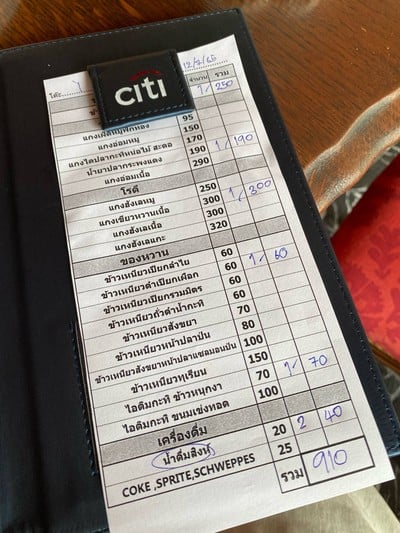 citi
โต๊ะ: 1 12/7/65
จำนวน รวม
1/ 250
แกงเผ็ดหมูฟักทอง 95
แกงอ่อมหมู 150
แกงไตปลากะทิหน่อไม้ สะตอ 170
น้ำยาปลากระพงแดง 190 1/ 190
แกงอ่อมเนื้อ 290
โรตี
แกงฮังเลหมู 250
แกงเขียวหวานเนื้อ 300 1/ 300
แกงฮังเลเนื้อ 300
แกงฮังเลแกะ 320
ของหวาน
ข้าวเหนียวเปียกลำไย 60
ข้าวเหนียวดำเปียกเผือก 60 1/ 60
ข้าวเหนียวเปียกรวมมิตร 60
ข้าวเหนียวถั่วดำน้ำกะทิ 60
ข้าวเหนียวสังขยา 70
ข้าวเหนียวหน้าปลาป่น 80
ข้าวเหนียวสังขยาหน้าปลาแซลมอนป่น 100
ข้าวเหนียวทุเรียน 150
ไอติมกะทิ ข้าวหนุกงา 70 1/ 70
ไอติมกะทิ ขนมเข่งทอด 100
เครื่องดื่ม
น้ำดื่มสิงห์ 20 2 40
COKE ,SPRITE,SCHWEPPES 25
รวม 910